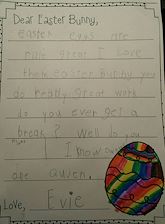 Dear Easter Bunny,
easter eggs are
rille great I Love
them easter Bunny you
do really great work
do you ever get a
break? Well do you
I know
are awsen.
Love, Evie